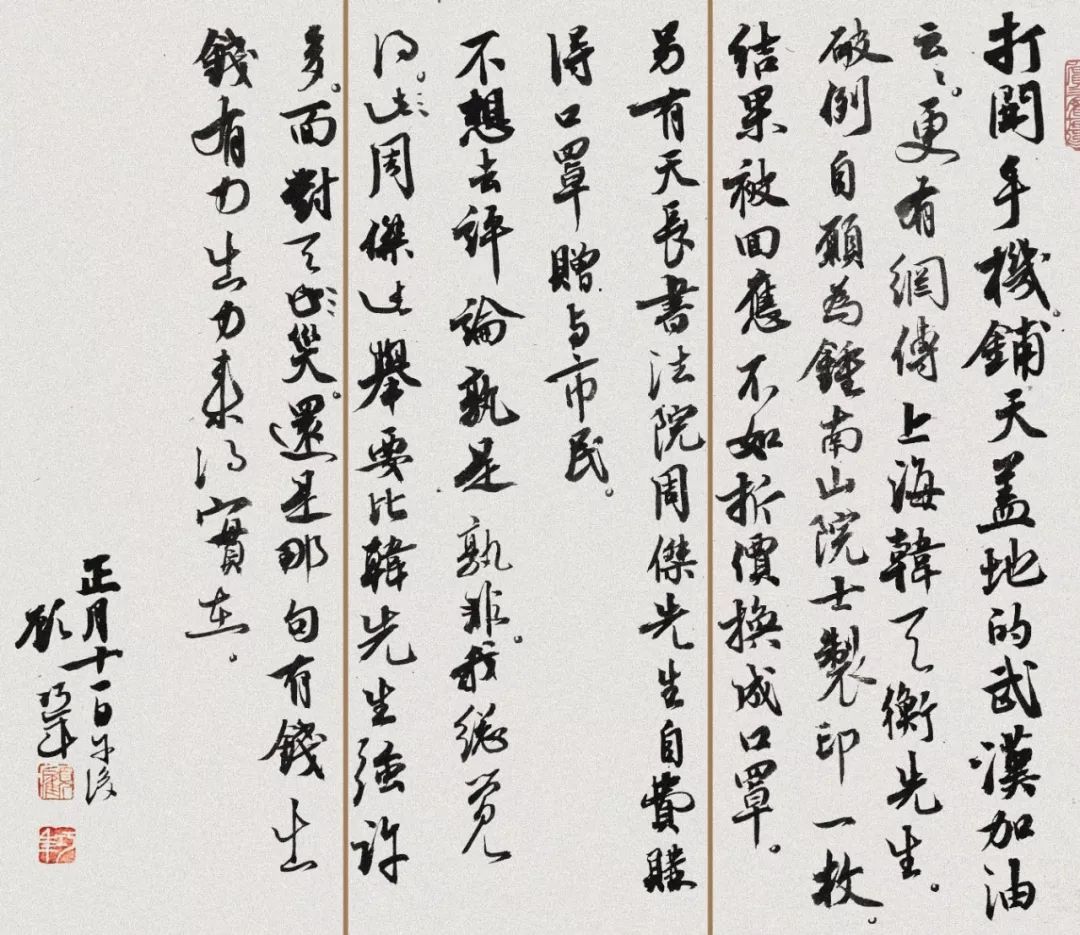 打開手機。鋪天蓋地的武漢加油
云〻。更有網傳上海韓天衡先生。
破例自願為鍾南山院士製印一枚。
结果被回應不如折價換成口罩。
另有天長書法院周傑先生自費購
得口罩贈与市民。
不想去評論孰是孰非。我總覺
得。此周傑此舉要比韓先生強許
多。面對天此災。還是那句有錢出
錢有力出力来得實在。
正月十一日午後